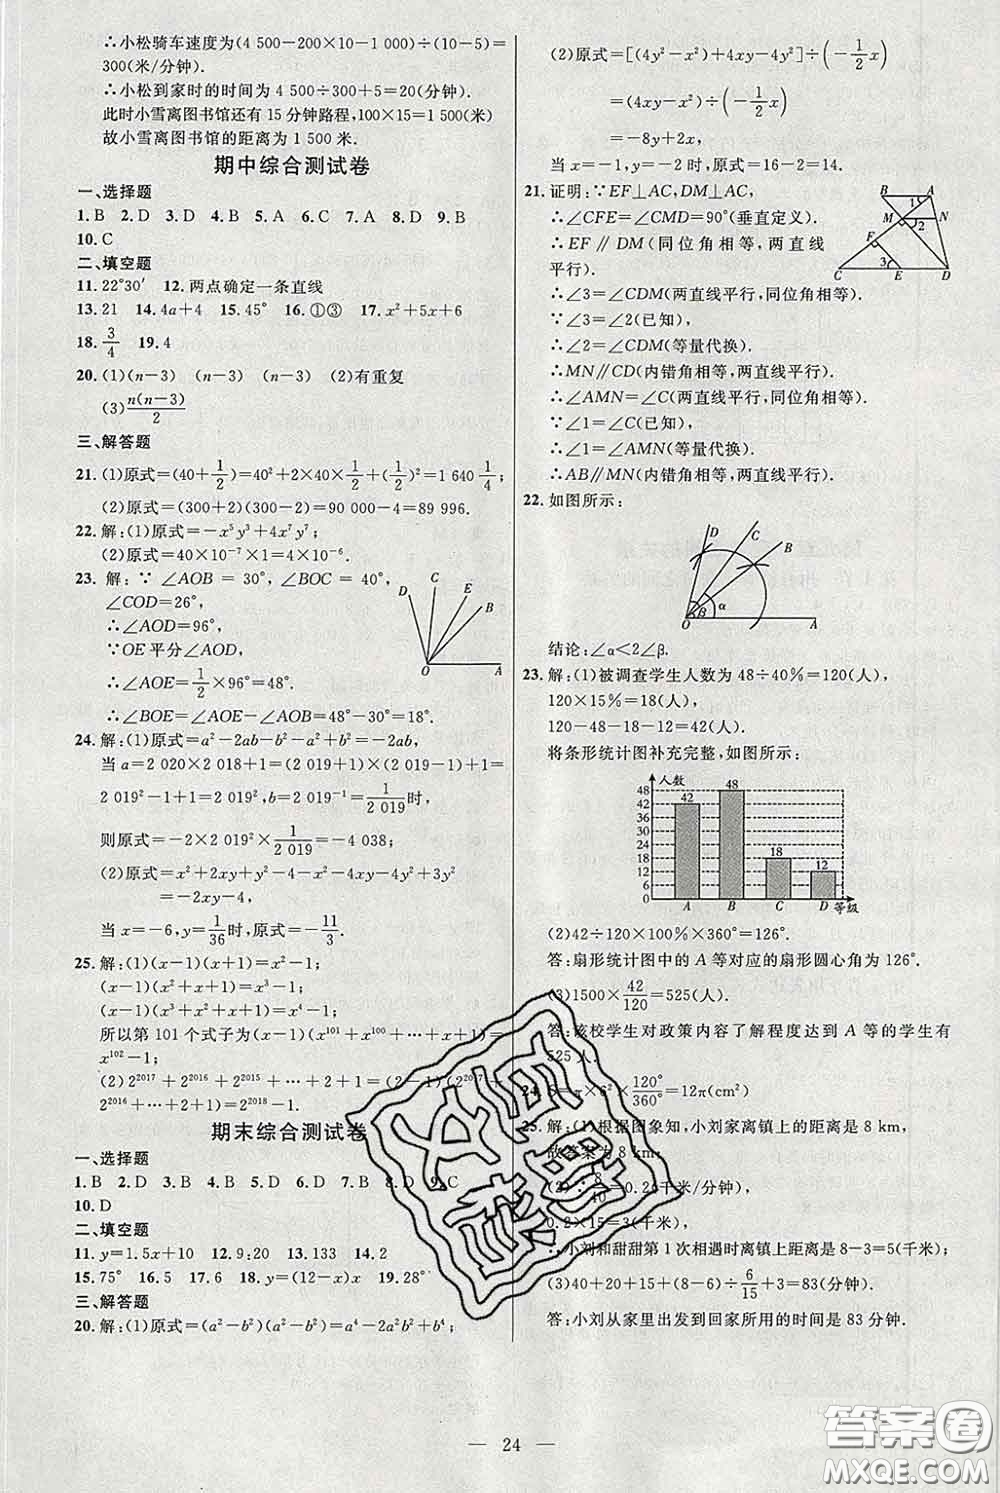 ∴小松骑车速度为(4 500－200×10－1 000)÷(10－5)＝
300(米/分钟).
∴小松到家时的时间为 4 500÷300＋5＝20(分钟).
此时小雪离图书馆还有 15 分钟路程,100×15＝1 500(米)
故小雪离图书馆的距离为 1 500 米.
期中综合测试卷
一、选择题
1.B 2.D 3.D 4.B 5.A 6.C 7.A 8.D 9.B
10.C
二、填空题
11.22°30′ 12.两点确定一条直线
13.21 14.4a＋4 15.45° 16.①③ 17.x²＋5x＋6
18.3/4 19.4
20.(1)(n－3) (n－3) (n－3) (2)有重复
(3)n(n－3)/2
三、解答题
21.(1)原式＝(40＋1/2)＝40²＋2×40×1/2＋(1/2)²＝1 640 1/4;
(2)原式＝(300＋2)(300－2)＝90 000－4＝89 996.
22.解:(1)原式＝－x⁵y³＋4x⁷y⁷;
(2)原式＝40×10⁻⁷×1＝4×10⁻⁶.
23.解: ∵ ∠AOB ＝ 30°, ∠BOC ＝ 40°,
∠COD＝26°,
∴∠AOD＝96°,
∵OE平分∠AOD,
∴∠AOE＝1/2×96°＝48°.
∴∠BOE＝∠AOE－∠AOB＝48°－30°＝18°.
D C E B O A
24.解:(1)原式＝a²－2ab－b²－a²＋b²＝－2ab,
当a＝2 020×2 018＋1＝(2 019＋1)×(2 019－1)＋1＝
2 019²－1＋1＝2 019²,b＝1/2 019时,
则原式＝－2×2 019²×1/2 019＝－4 038;
(2)原式＝x²＋2xy＋y²－4－xy－4y－4y²＋3y²
＝－xy－4,
当x＝－6,y＝1/36时,原式＝－11/3.
25.解:(1)(x－1)(x＋1)＝x²－1;
(x－1)(x²＋x＋1)＝x³－1;
(x－1)(x³＋x²＋x＋1)＝x⁴－1;
所以第 101 个式子为(x－1)(x¹⁰¹＋x¹⁰⁰＋⋯＋x＋1)＝
x¹⁰²－1;
(2)2²⁰¹⁷＋2²⁰¹⁶＋2²⁰¹⁵＋⋯＋2＋1＝(2－1)(2²⁰¹⁷＋
2²⁰¹⁶＋⋯＋2＋1)＝2²⁰¹⁸－1.
期末综合测试卷
一、选择题
1.B 2.D 3.C 4.B 5.D 6.B 7.C 8.D 9.C
10.D
二、填空题
11.y＝1.5x＋10 12.9:20 13.133 14.2
15.75° 16.4 17.6 18.y＝(12－x)x 19.28°
三、解答题
20.解:(1)原式＝(a²－b²)(a²－b²)＝a⁴－2a²b²＋b⁴;
(2)原式＝[(4y²－x²)－(4y²－4xy)]÷(－1/2x)
＝(4xy－x²)÷(－1/2x)
＝－8y＋2x.
当x＝－1,y＝－2时,原式＝16－2＝14.
21.证明:∵EF⊥AC,DM⊥AC,
∴∠CFE＝∠CMD＝90°(垂直定义).
∴EF∥DM(同位角相等,两直线
平行).
∴∠3＝∠CDM(两直线平行,同位角相等).
∵∠3＝∠2(已知),
∴∠2＝∠CDM(等量代换).
∴MN∥CD(内错角相等,两直线平行).
∴∠AMN＝∠C(两直线平行,同位角相等).
∵∠1＝∠C(已知),
∴∠1＝∠AMN(等量代换).
∴AB∥MN(内错角相等,两直线平行).
B A 1 M N 2 F 3 C E D
22.如图所示:
D C B O β α A
结论:∠α＜2∠β.
23.解:(1)被调查学生人数为 48÷40%＝120(人),
120×15%＝18(人),
120－48－18－12＝42(人).
将条形统计图补充完整,如图所示:
人数
48 42 48
42
36
30
24
18 18
12 12
6
0 A B C D 等级
(2)42÷120×100%×360°＝126°.
答:扇形统计图中的 A 等对应的扇形圆心角为 126°.
(3)1500×42/120＝525(人).
答:该校学生对政策内容了解程度达到 A 等的学生有
525 人.
24.S＝π×6²×120°/360°＝12π(cm²)
25.解:(1)根据图象知,小刘家离镇上的距离是 8 km,
故答案为 8 km;
(2)∵8/40＝0.2(千米/分钟),
0.2×15＝3(千米),
∴小刘和甜甜第 1 次相遇时离镇上的距离是 8－3＝5(千米);
(3)40＋20＋15＋(8－5)÷6/15＋3＝83(分钟).
答:小刘从家里出发到回家所用的时间是 83 分钟.
— 24 —
答案卷
MXQE.COM